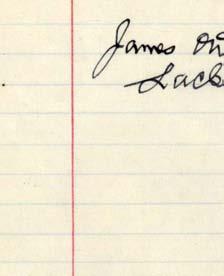 James
Lack